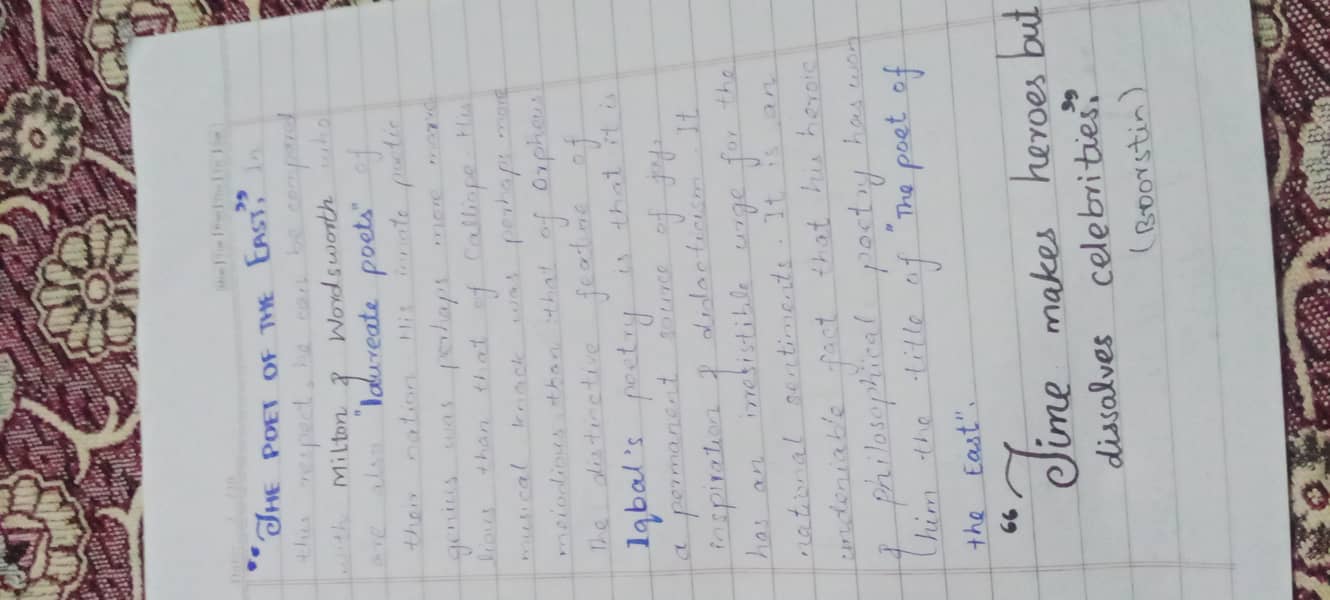 "THE POET OF THE EAST", In
this respect, he can be compared
with Milton & Wordsworth who
are also "laureate poets" of
their nation. His innate poetic
genius was perhaps more
than that of Calliope. His
musical knack was perhaps more
melodious than that of Orpheus
The distinctive feature of
Iqbal's poetry is that it is
a permanent source of joy,
inspiration & didanticism. It
has an irresistible urge for the
national sentiments. It is an
undeniable fact that his heroic
& philosophical poetry has won
him the title of "The poet of
the East".
"Time makes heroes but
dissalves celebrities",
(Boorstin)